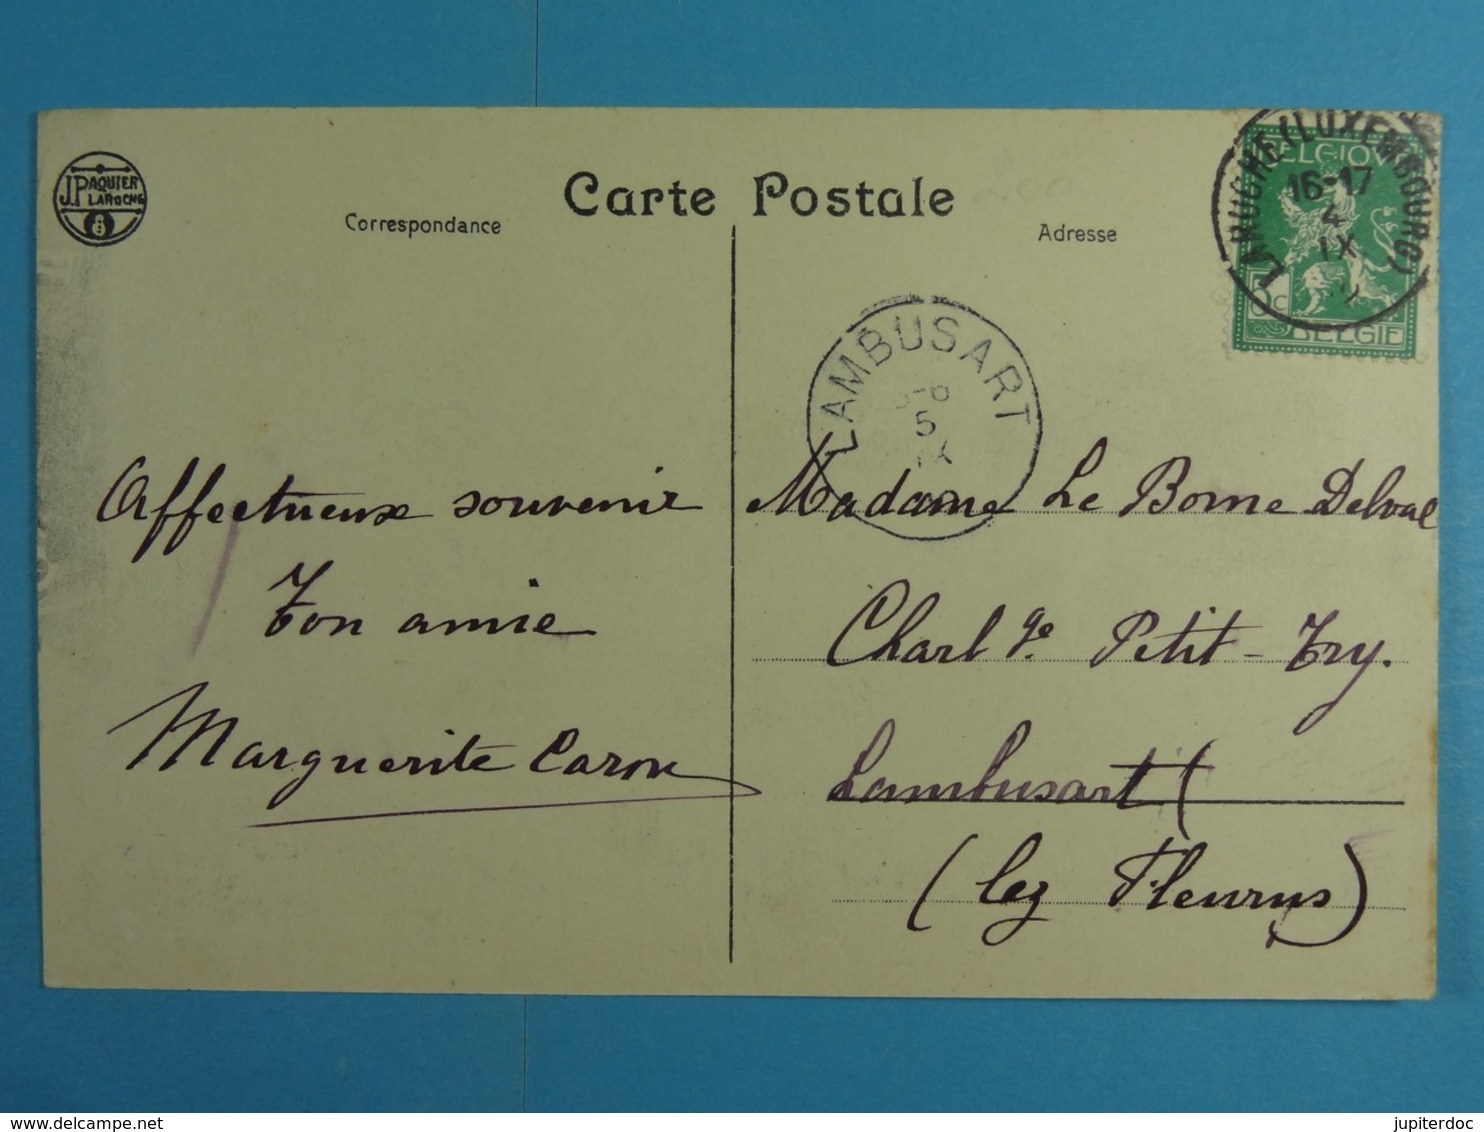 J. PAQUIER
LAROCHE
8
Carte Postale
Correspondance
Adresse
LAROCHE (LUXEMBOURG)
16-17
4
IX
BELGIQUE
5c
BELGIË
LAMBUSART
5
IX
Affectueux souvenir
Ton amie
Marguerite Caron
Madame Le Borne Delval
Charl ge Petit-Try.
Lambusart (
(lez Fleurus)
delcampe.net
jupiterdoc